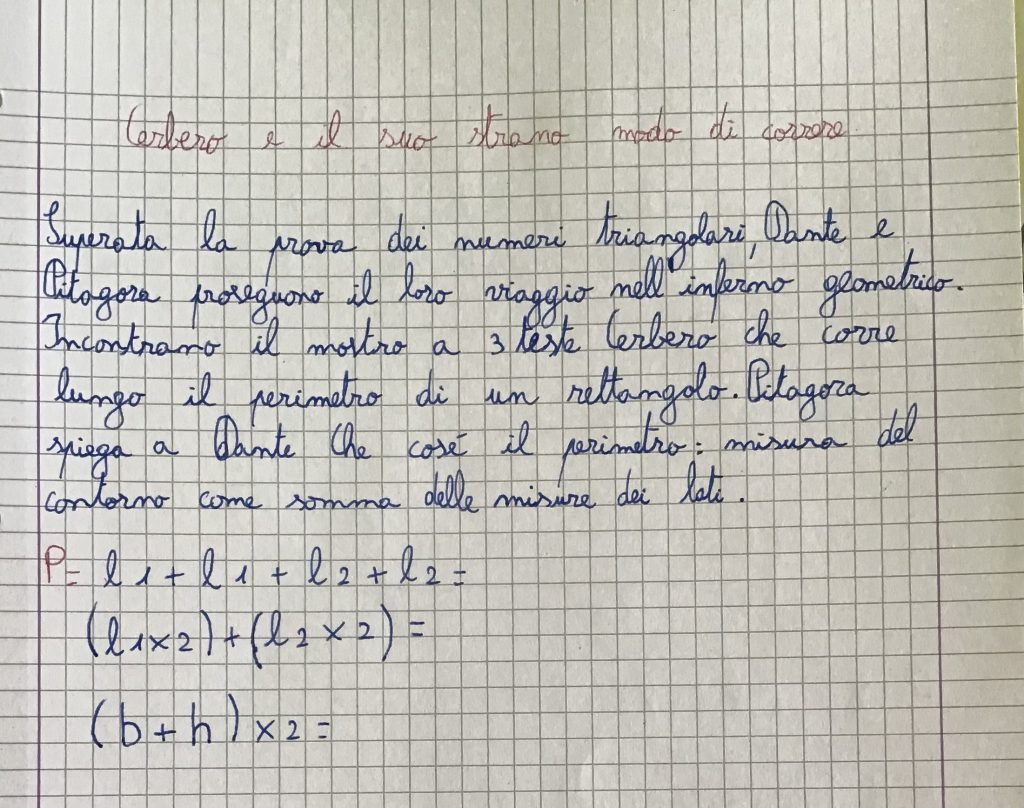 Cerbero e il suo strano modo di correre
Superata la prova dei numeri triangolari, Dante e
Pitagora proseguono il loro viaggio nell'inferno geometrico.
Incontrano il mostro a 3 teste Cerbero che corre
lungo il perimetro di un rettangolo. Pitagora
spiega a Dante Che cosé il perimetro: misura del
contorno come somma delle misure dei lati.
P= l1 + l1 + l2 + l2 =
(l1x2)+(l2x2) =
(b+h) x2 =